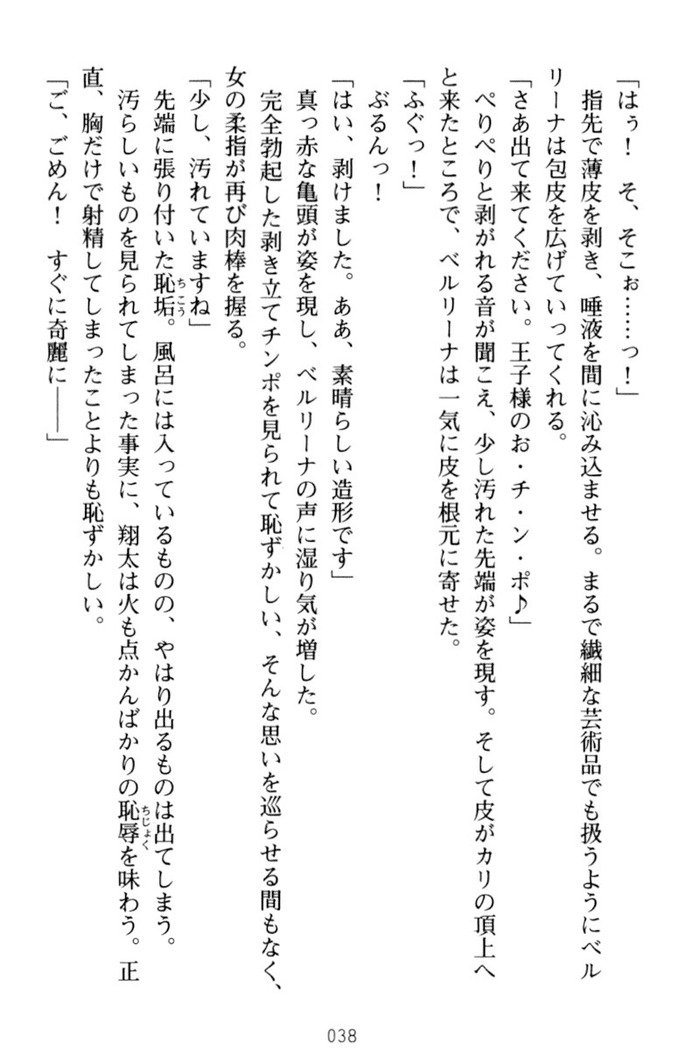 「はぅ！　そ、そこぉ……っ！」
　指先で薄皮を剥き、唾液を間に沁み込ませる。まるで繊細な芸術品でも扱うようにベル
リーナは包皮を広げていってくれる。
「さあ出て来てください。王子様のお・チ・ン・ポ♪」
　ぺりぺりと剥がれる音が聞こえ、少し汚れた先端が姿を現す。そして皮がカリの頂上へ
と来たところで、ベルリーナは一気に皮を根元に寄せた。
「ふぐっ！」
　ぶるんっ！
「はい、剥けました。ああ、素晴らしい造形です」
　真っ赤な亀頭が姿を現し、ベルリーナの声に湿り気が増した。
　完全勃起した剥き立てチンポを見られて恥ずかしい、そんな思いを巡らせる間もなく、
女の柔指が再び肉棒を握る。
「少し、汚れていますね」
　先端に張り付いた恥垢。風呂には入っているものの、やはり出るものは出てしまう。
　汚らしいものを見られてしまった事実に、翔太は火も点かんばかりの恥辱を味わう。正
直、胸だけで射精してしまったことよりも恥ずかしい。
「ご、ごめん！　すぐに奇麗に――」
038